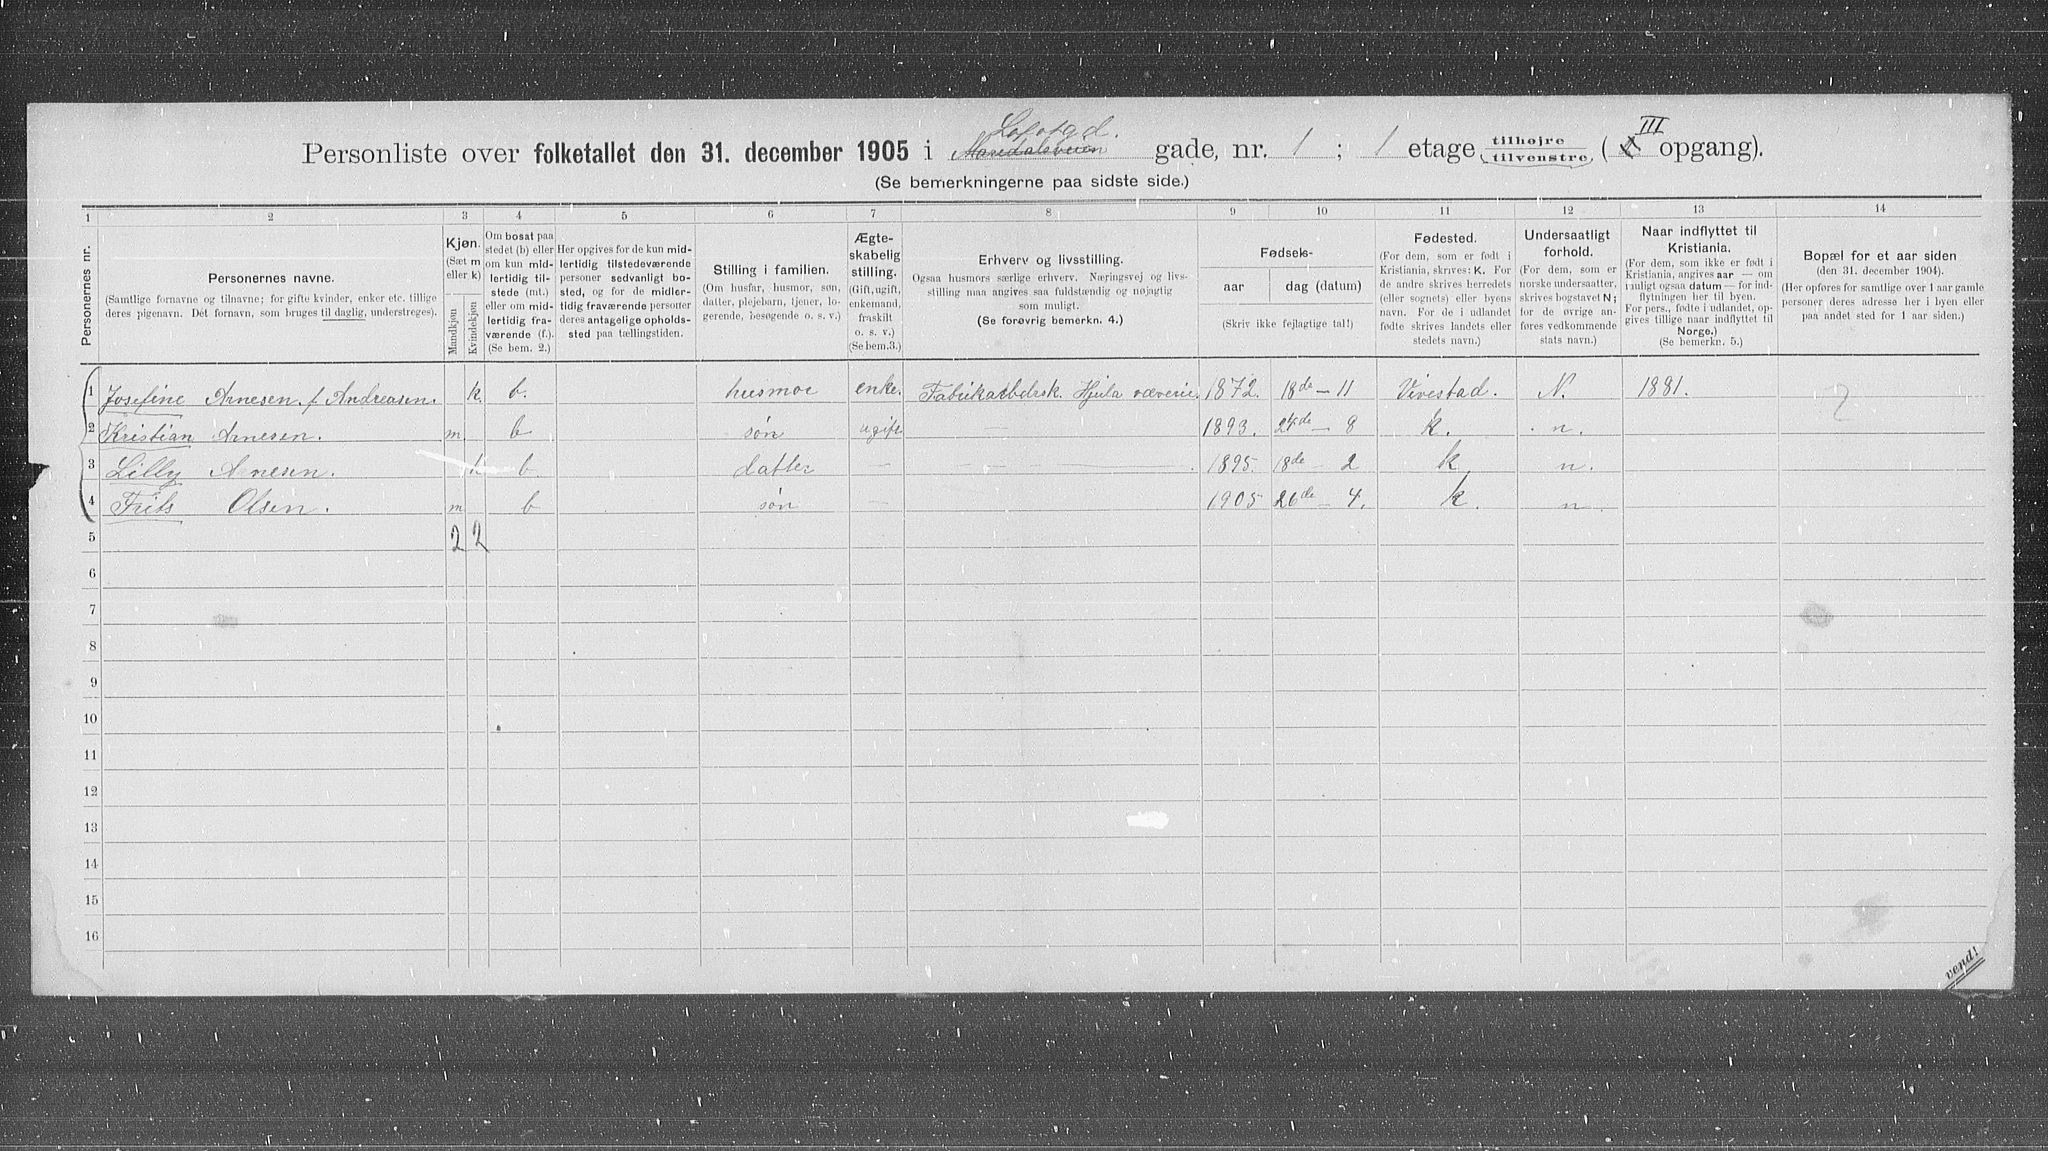 Personliste over folketallet den 31. december 1905 i Maridalsveien Lofotgd. gade, nr. 1 ; 1 etage tilhøjre tilvenstre ( III opgang).
(Se bemerkningerne paa sidste side.)
1 2 3 4 5 6 7 8 9 10 11 12 13 14
Personernes nr.
Personernes navne.
(Samtlige fornavne og tilnavne; for gifte kvinder, enker etc. tillige
deres pigenavn. Det fornavn, som bruges til daglig, understreges).
Kjøn.
(Sæt m
eller k)
Mandkjøn
Kvindekjøn
Om bosat paa
stedet (b) eller
om kun mid-
lertidig til-
stede (mt.)
eller om mid-
lertidig fra-
værende (f.).
(Se bem. 2.)
Her opgives for de kun mid-
lertidig tilstedeværende
personer sedvanlig bo-
sted, og for de midler-
tidig fraværende personer
deres antagelige opholds-
sted paa tællingstiden.
Stilling i familien.
(Om husfar, husmor, søn,
datter, plejebarn, tjener, lo-
gerende, besøgende o. s. v.)
Ægte-
skabelig
stilling.
(Gift, ugift,
enkemand,
fraskilt
o. s. v.)
(Se bem.3.)
Erhverv og livsstilling.
Ogsaa husmors særlige erhverv. Næringsvej og livs-
stilling maa angives saa fuldstændig og nøjagtig
som muligt.
(Se forøvrig bemerkn. 4.)
Fødsels-
aar
dag (datum)
(Skriv ikke fejlagtige tal!)
Fødested.
(For dem, som er født i
Kristiania, skrives: K. For
de andre skrives herredets
(eller sognets) eller byens
navn. For de i udlandet
fødte skrives landets eller
stedets navn.)
Undersaatligt
forhold.
(For dem, som er
norske undersaatter,
skrives bogstavet N;
for de øvrige an-
føres vedkommende
stats navn.)
Naar indflyttet til
Kristiania.
(For dem, som ikke er født i
Kristiania, angives aar — om
muligt ogsaa datum — for ind-
flytningen her til byen.
For pers., fødte i udlandet, op-
gives tillige naar indflyttet til
Norge.)
(Se bemerkn. 5.)
Bopæl for et aar siden
(den 31. december 1904).
(Her opføres for samtlige over 1 aar gamle
personer deres adresse her i byen eller
paa andet sted for 1 aar siden.)
1 Josefine Arnesen. f Andreasen. k. b. husmor enke. Fabrikarbdersk. Hjula væveri. 1872. 18de - 11 Vivestad. N. 1881. ?
2 Kristian Arnesen. m b søn ugift — 1893. 24de - 8 k. n.
3 Lilly Arnesen. k b datter — — 1895. 18de - 2 k n.
4 Frits Olsen. m b søn — 1905 26de - 4. k. n.
5 2 2
6
7
8
9
10
11
12
13
14
15
16
vend!